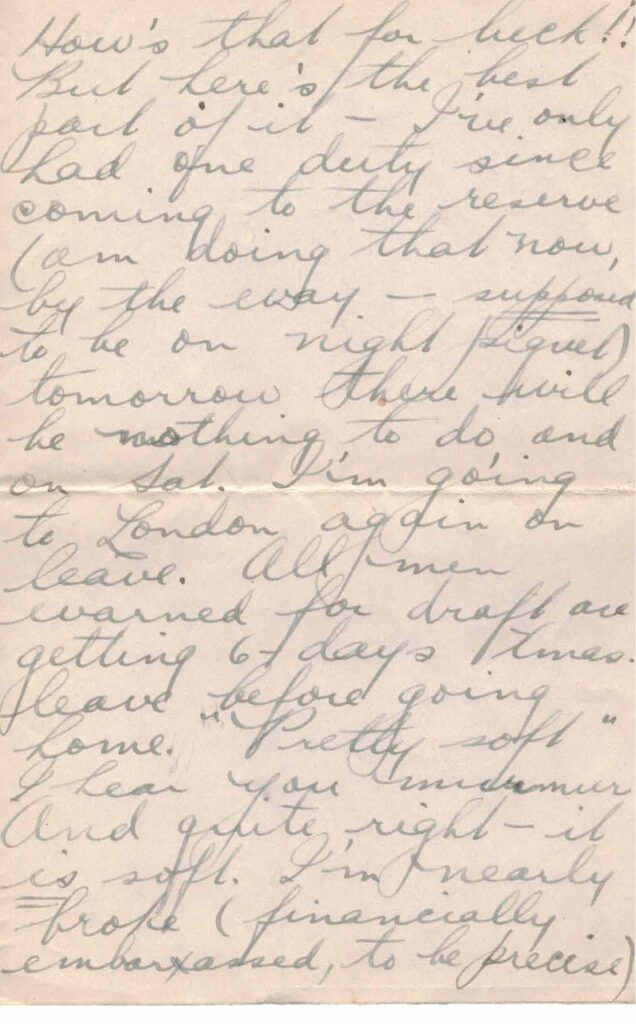 How's that for luck!!
But here's the best
part of it – I've only
had one duty since
coming to the reserve
(am doing that now,
by the way – supposed
to be on night piquet)
tomorrow there will
be nothing to do and
on Sat. I'm going
to London again on
leave. All men
warned for draft are
getting 6 days Xmas.
leave before going
home. "Pretty soft"
I hear you murmur
And quite right – it
is soft. I'm nearly
broke (financially
embarrassed, to be precise)